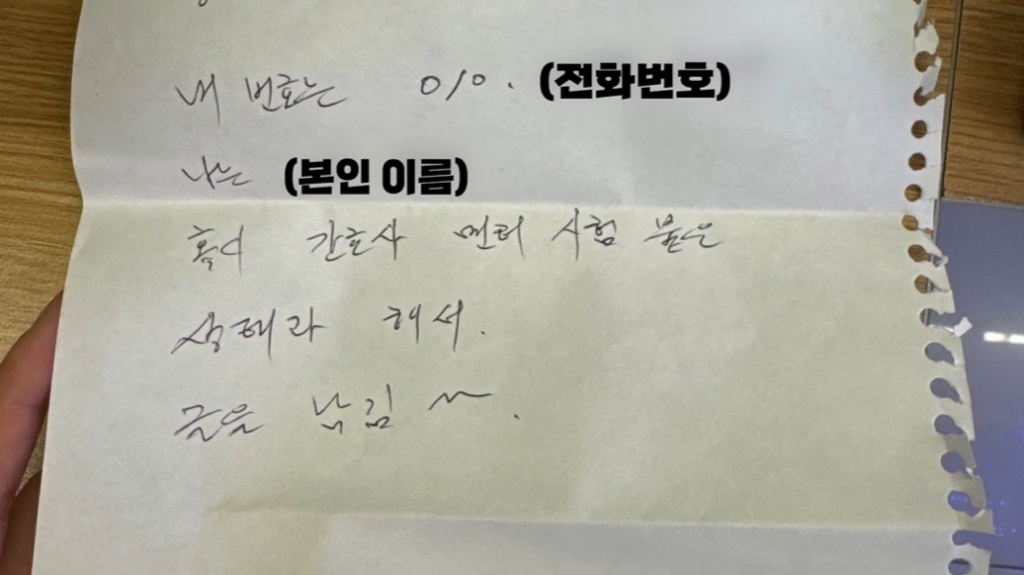 내 번호는 010. (전화번호)
나는 (본인 이름)
혹시 간호사 면허 시험 붙은
상태라 해서.
글을 남김 ~.